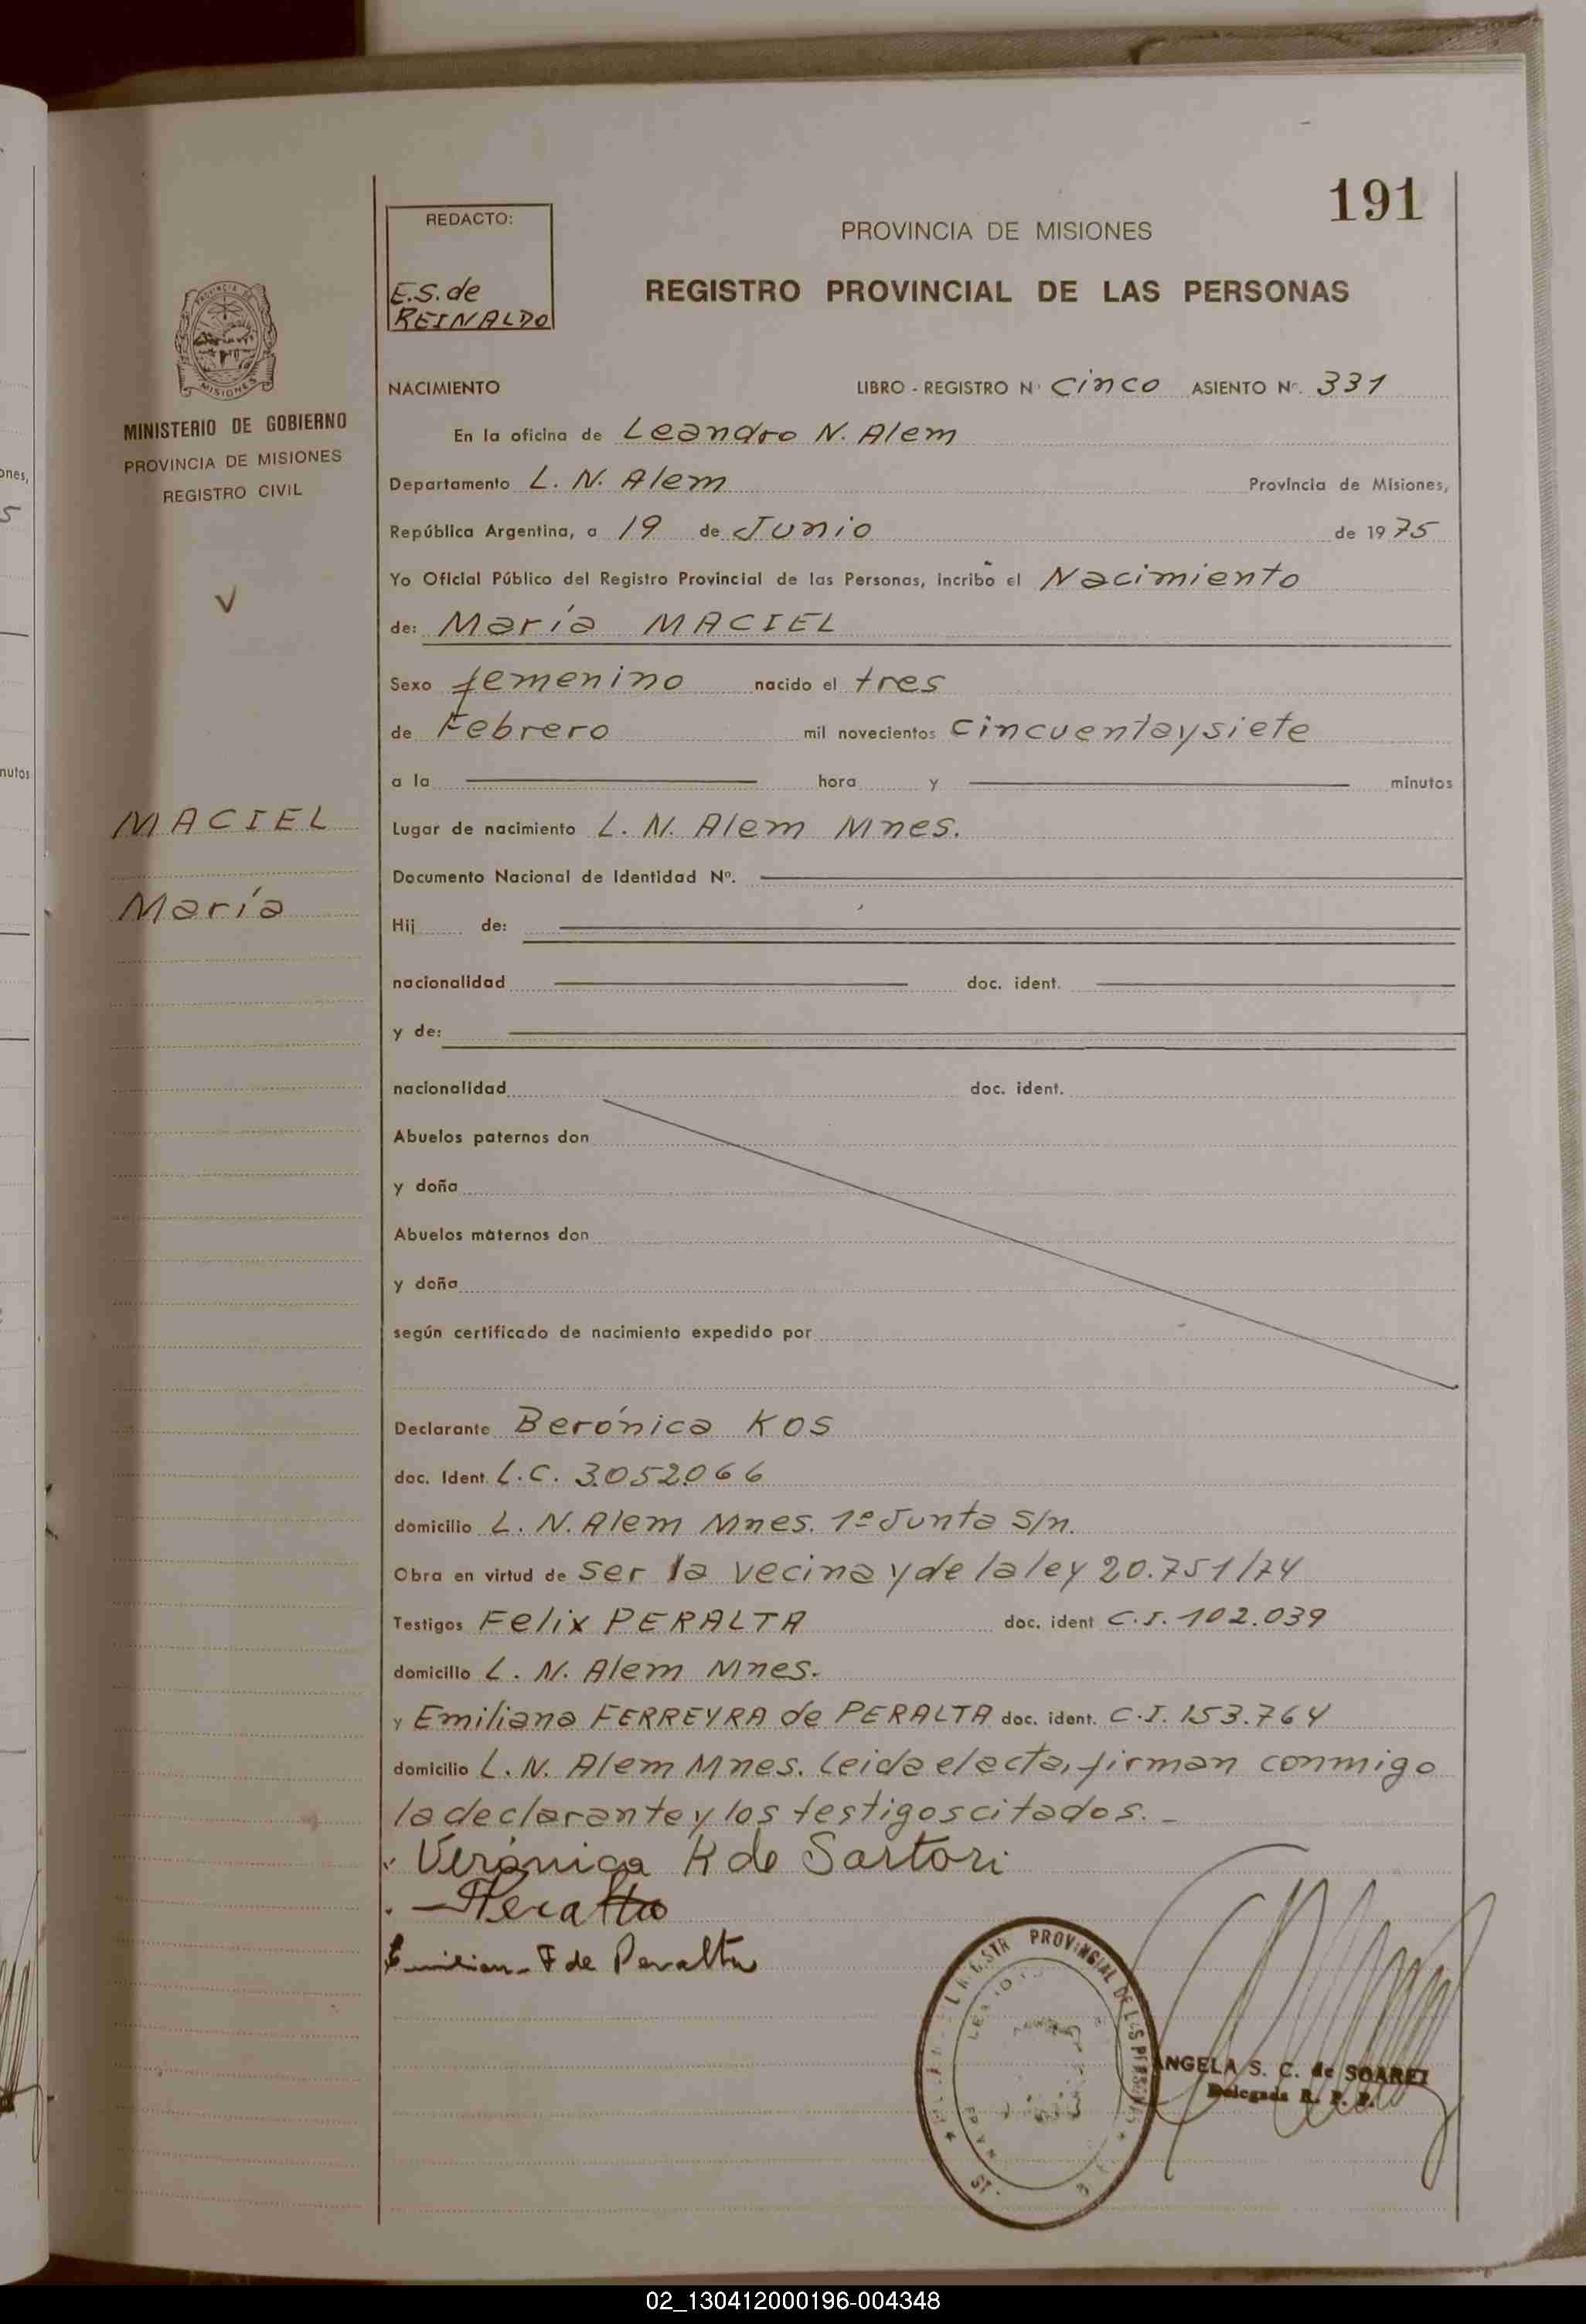 191
REDACTO:
E.S. de
REINALDO
PROVINCIA DE MISIONES
REGISTRO PROVINCIAL DE LAS PERSONAS
MINISTERIO DE GOBIERNO
PROVINCIA DE MISIONES
REGISTRO CIVIL
NACIMIENTO LIBRO - REGISTRO N° Cinco ASIENTO N°. 331
En la oficina de Leandro N. Alem
Departamento L. N. Alem Provincia de Misiones,
República Argentina, a 19 de Junio de 1975
Yo Oficial Público del Registro Provincial de las Personas, incribo el Nacimiento
de: María MACIEL
Sexo femenino nacido el tres
de Febrero mil novecientos cincuentaysiete
a la hora y minutos
MACIEL
María
Lugar de nacimiento L. N. Alem Mnes.
Documento Nacional de Identidad Nº.
Hij de:
nacionalidad doc. ident.
y de:
nacionalidad doc. ident.
Abuelos paternos don
y doña
Abuelos maternos don
y doña
según certificado de nacimiento expedido por
Declarante Berónica KOS
doc. Ident. L.C. 3.052.066
domicilio L. N. Alem Mnes. 1º Junta S/n.
Obra en virtud de ser la vecina y de la ley 20.751/74
Testigos Felix PERALTA doc. ident C.I. 102.039
domicilio L. N. Alem Mnes.
y Emiliana FERREYRA de PERALTA doc. ident. C.I. 153.764
domicilio L. N. Alem Mnes. Leida el acta, firman conmigo
la declarante y los testigos citados.-
Verónica K de Sartori
Peralta
Emilian- F de Peralta
PROVINCIAL DE LAS PERSONAS
ANGELA S. C. de SOAREZ
Delegada R. P. P.
ones,
5
nutos
02_130412000196-004348